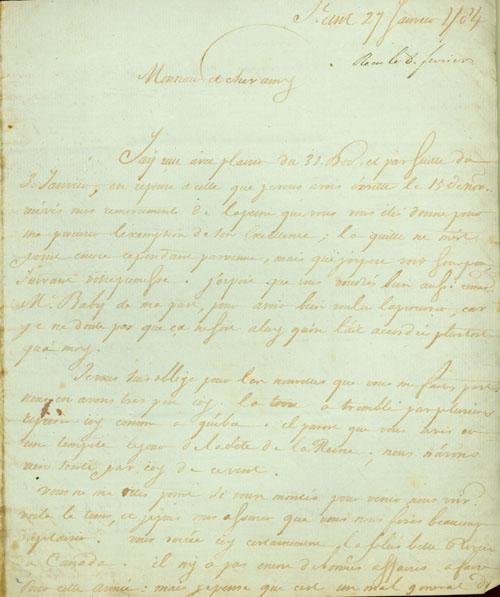 Ste anne 27 Janvier 1784
Recu le 8. fevrier
Monsieur et cher amy
J'ay reçu avec plaisir du 31. et par suitte du
3. Janvier, en reponse a celle que je vous avois écritte le 15
mes remerciments de la peine que vous vous êtes donné pour
me procurer l'exemption de Son Excellence; la quelle ne m'est
point encore cependant parvenue, mais que j'espere voir
Suivant votre promesse. j'espere que vous voudrés bien aussi
Mr. Baby de ma part, pour avoir bien voulu la procurer, car
je ne doute pas que ce ne soit a luy qu'on l'ait accordée plustost
qu'a moy.
Je vous suis obligé pour les nouvelles que vous me faites part
nous en avons tres peu icy. la terre a tremblé par plusieurs
reprises icy comme a quebec. il paroit que vous avés eu
une tempête le jour de la fête de la Reine; nous n'avons
rien senti par icy de ce vent.
Vous ne me dites point si vous montés pour venir nous voir
voila le tems, et je puis vous assurer que vous nous ferés beaucoup
de plaisir. vous verrés icy certainement la plus belle
du Canada. il n'y a pas encore de bonnes affaires a faire
pour cette année: mais je pense que c'est un mal general